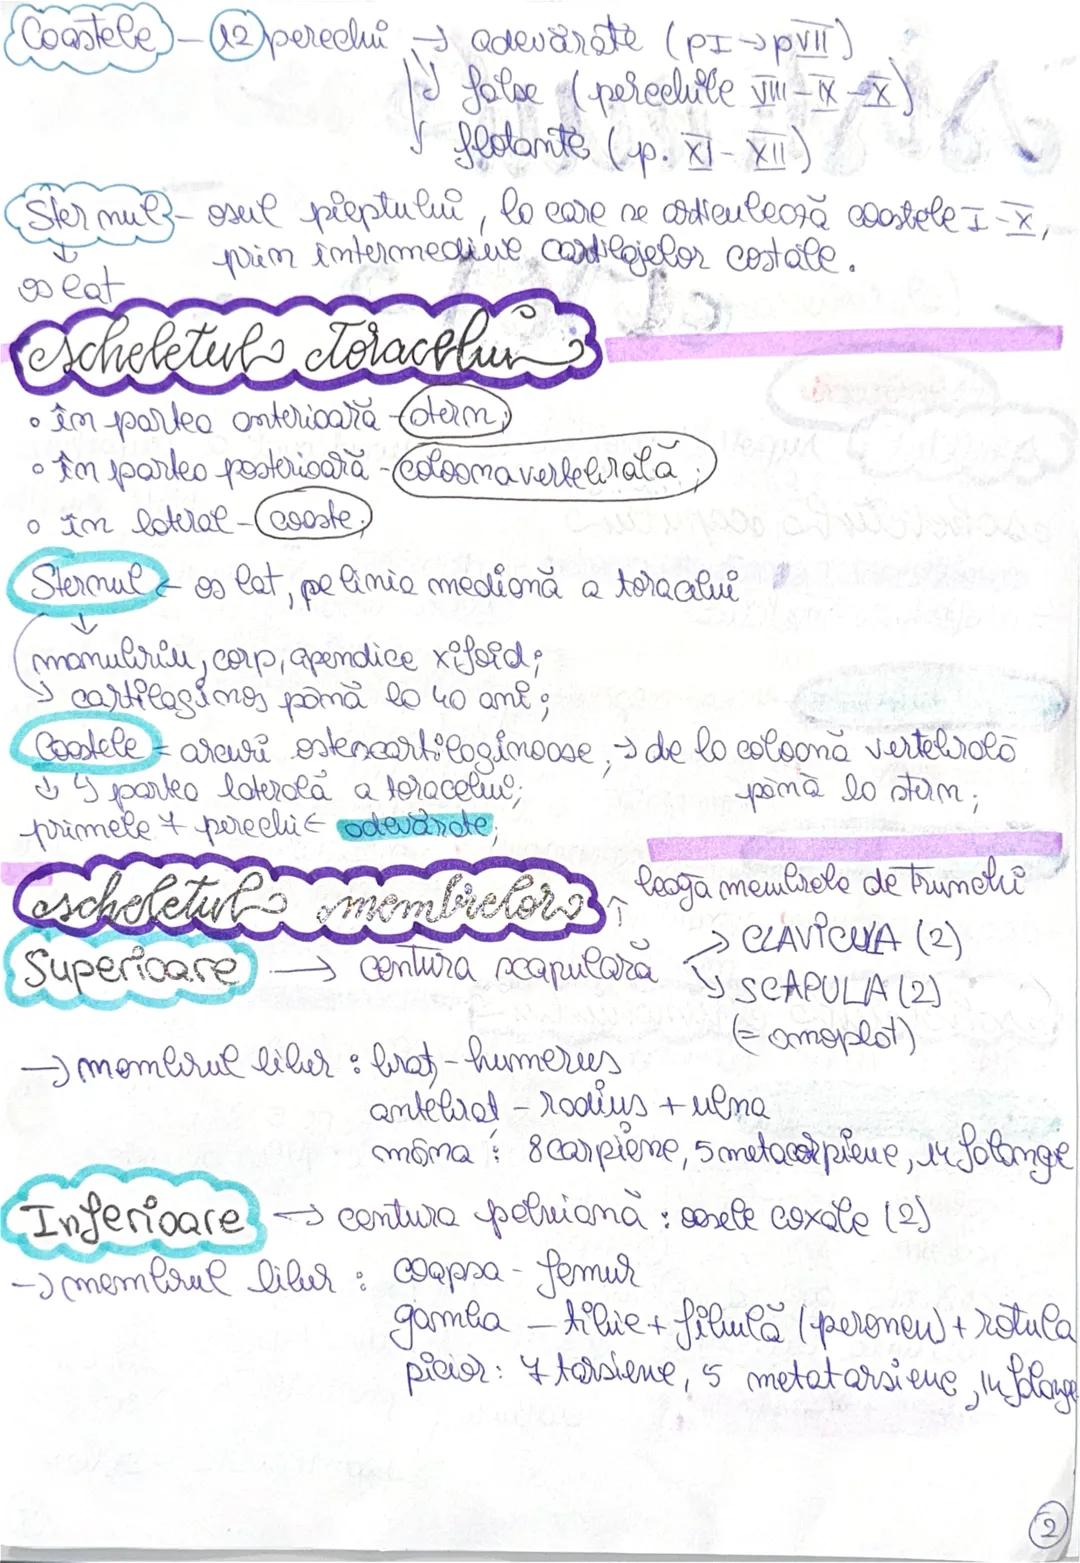 Coastele - 12 perechi → adevărate (pI→pVII)
↳ false (perechile VIII-IX-X)
↳ flotante (p. XI-XII)
Sternul - osul pieptului, la care se articulează coastele I-X,
↓ prin intermediul cartilajelor costale.
os lat
scheletul toracelui
• în partea anterioară - stern;
• în partea posterioară - coloana vertebrală;
• în lateral - coaste;
Sternul - os lat, pe linia mediană a toracelui
↓
manubriu, corp, apendice xifoid;
→ cartilaginos până la 40 ani;
Coastele = arcuri osteocartilaginoase; → de la coloană vertebrală
↓ ↳ partea laterală a toracelui; până la stern;
primele 7 perechi = adevărate;
scheletul membrelor ↑ leagă membrele de trunchi
Superioare → centura scapulară → CLAVICULA (2)
↘ SCAPULA (2)
(= omoplat)
→ membrul liber : braț - humerus
antebrat - radius + ulna
mâna : 8 carpiene, 5 metacarpiene, 14 falange
Inferioare → centura pelviană : oasele coxale (2)
→ membrul liber : coapsa - femur
gamba - tibie + fibulă (peroneu) + rotula
picior : 7 tarsiene, 5 metatarsiene, 14 falange
2